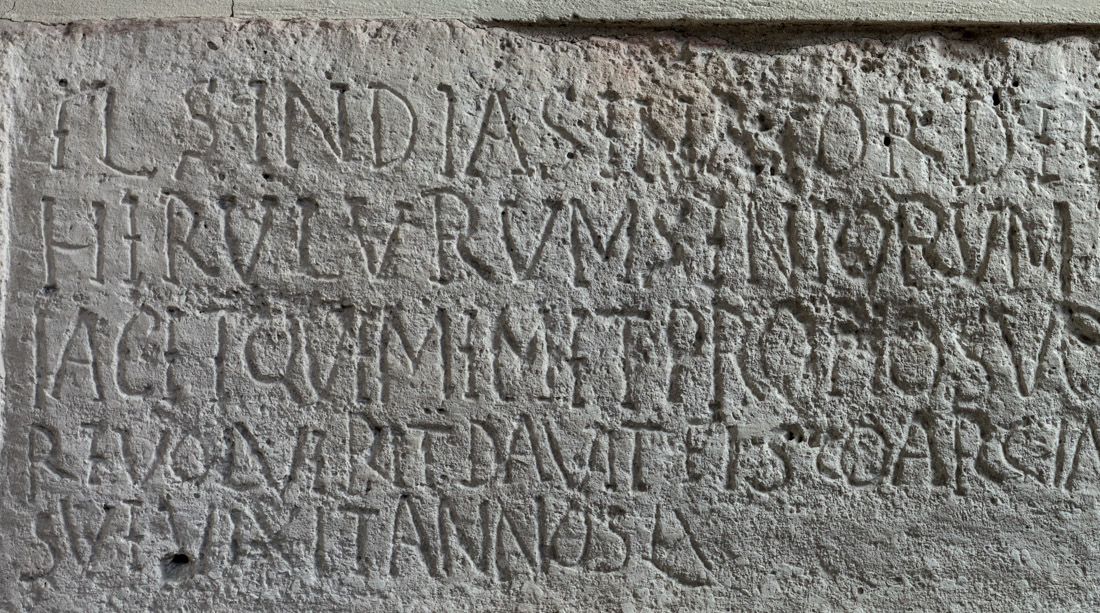 FL SINDIA SINATOR DE
HIRVLVRVM SENIORVM
IACET QVEMEMET PROPIO SVO
REVOLVERIT DAVIT FISCO ARCIA
SVE VIXIT ANNOS L